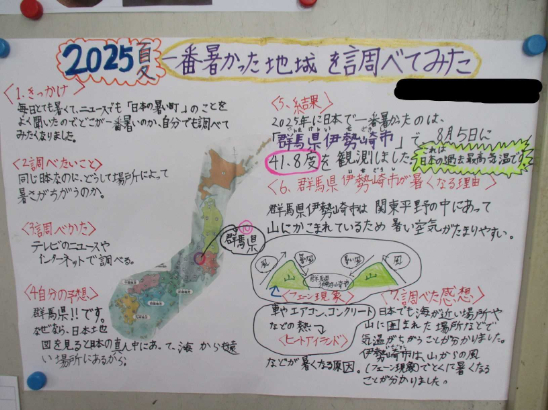 2025夏 一番暑かった地域を調べてみた
〈1、きっかけ〉
毎日とても暑くて、ニュースでも「日本の暑い町」のことを
よく聞いたのでどこが一番暑いのか、自分でも調べて
みたくなりました。
〈2調べたいこと〉
同じ日本なのに、どうして場所によって
暑さがちがうのか。
〈3調べかた〉
テレビのニュースや
インターネットで調べる。
〈4自分の予想〉
群馬県!!です。
なぜなら、日本地
図を見ると日本の真ん中にあって、海から遠
い場所にあるから。
群馬県
〈5、結果〉
2025年に日本で一番暑かったのは、
「群馬県伊勢崎市」で、8月5日に
41.8度を観測しました。
これは
日本の過去最高気温です
〈6、群馬県伊勢崎市が暑くなる理由〉
群馬県伊勢崎市は関東平野の中にあって
山にかこまれているため暑い空気がたまりやすい。
山
群馬県
伊勢崎市
山
〈フェーン現象〉
車やエアコン、コンクリート
などの熱
〈ヒートアイランド〉
などが暑くなる原因。
〈7、調べた感想〉
日本でも海が近い場所や
山に囲まれた場所などで
気温がちがうことが分かりました。
伊勢崎市は、山からの風
(フェーン現象)でとくに暑くなる
ことが分かりました。